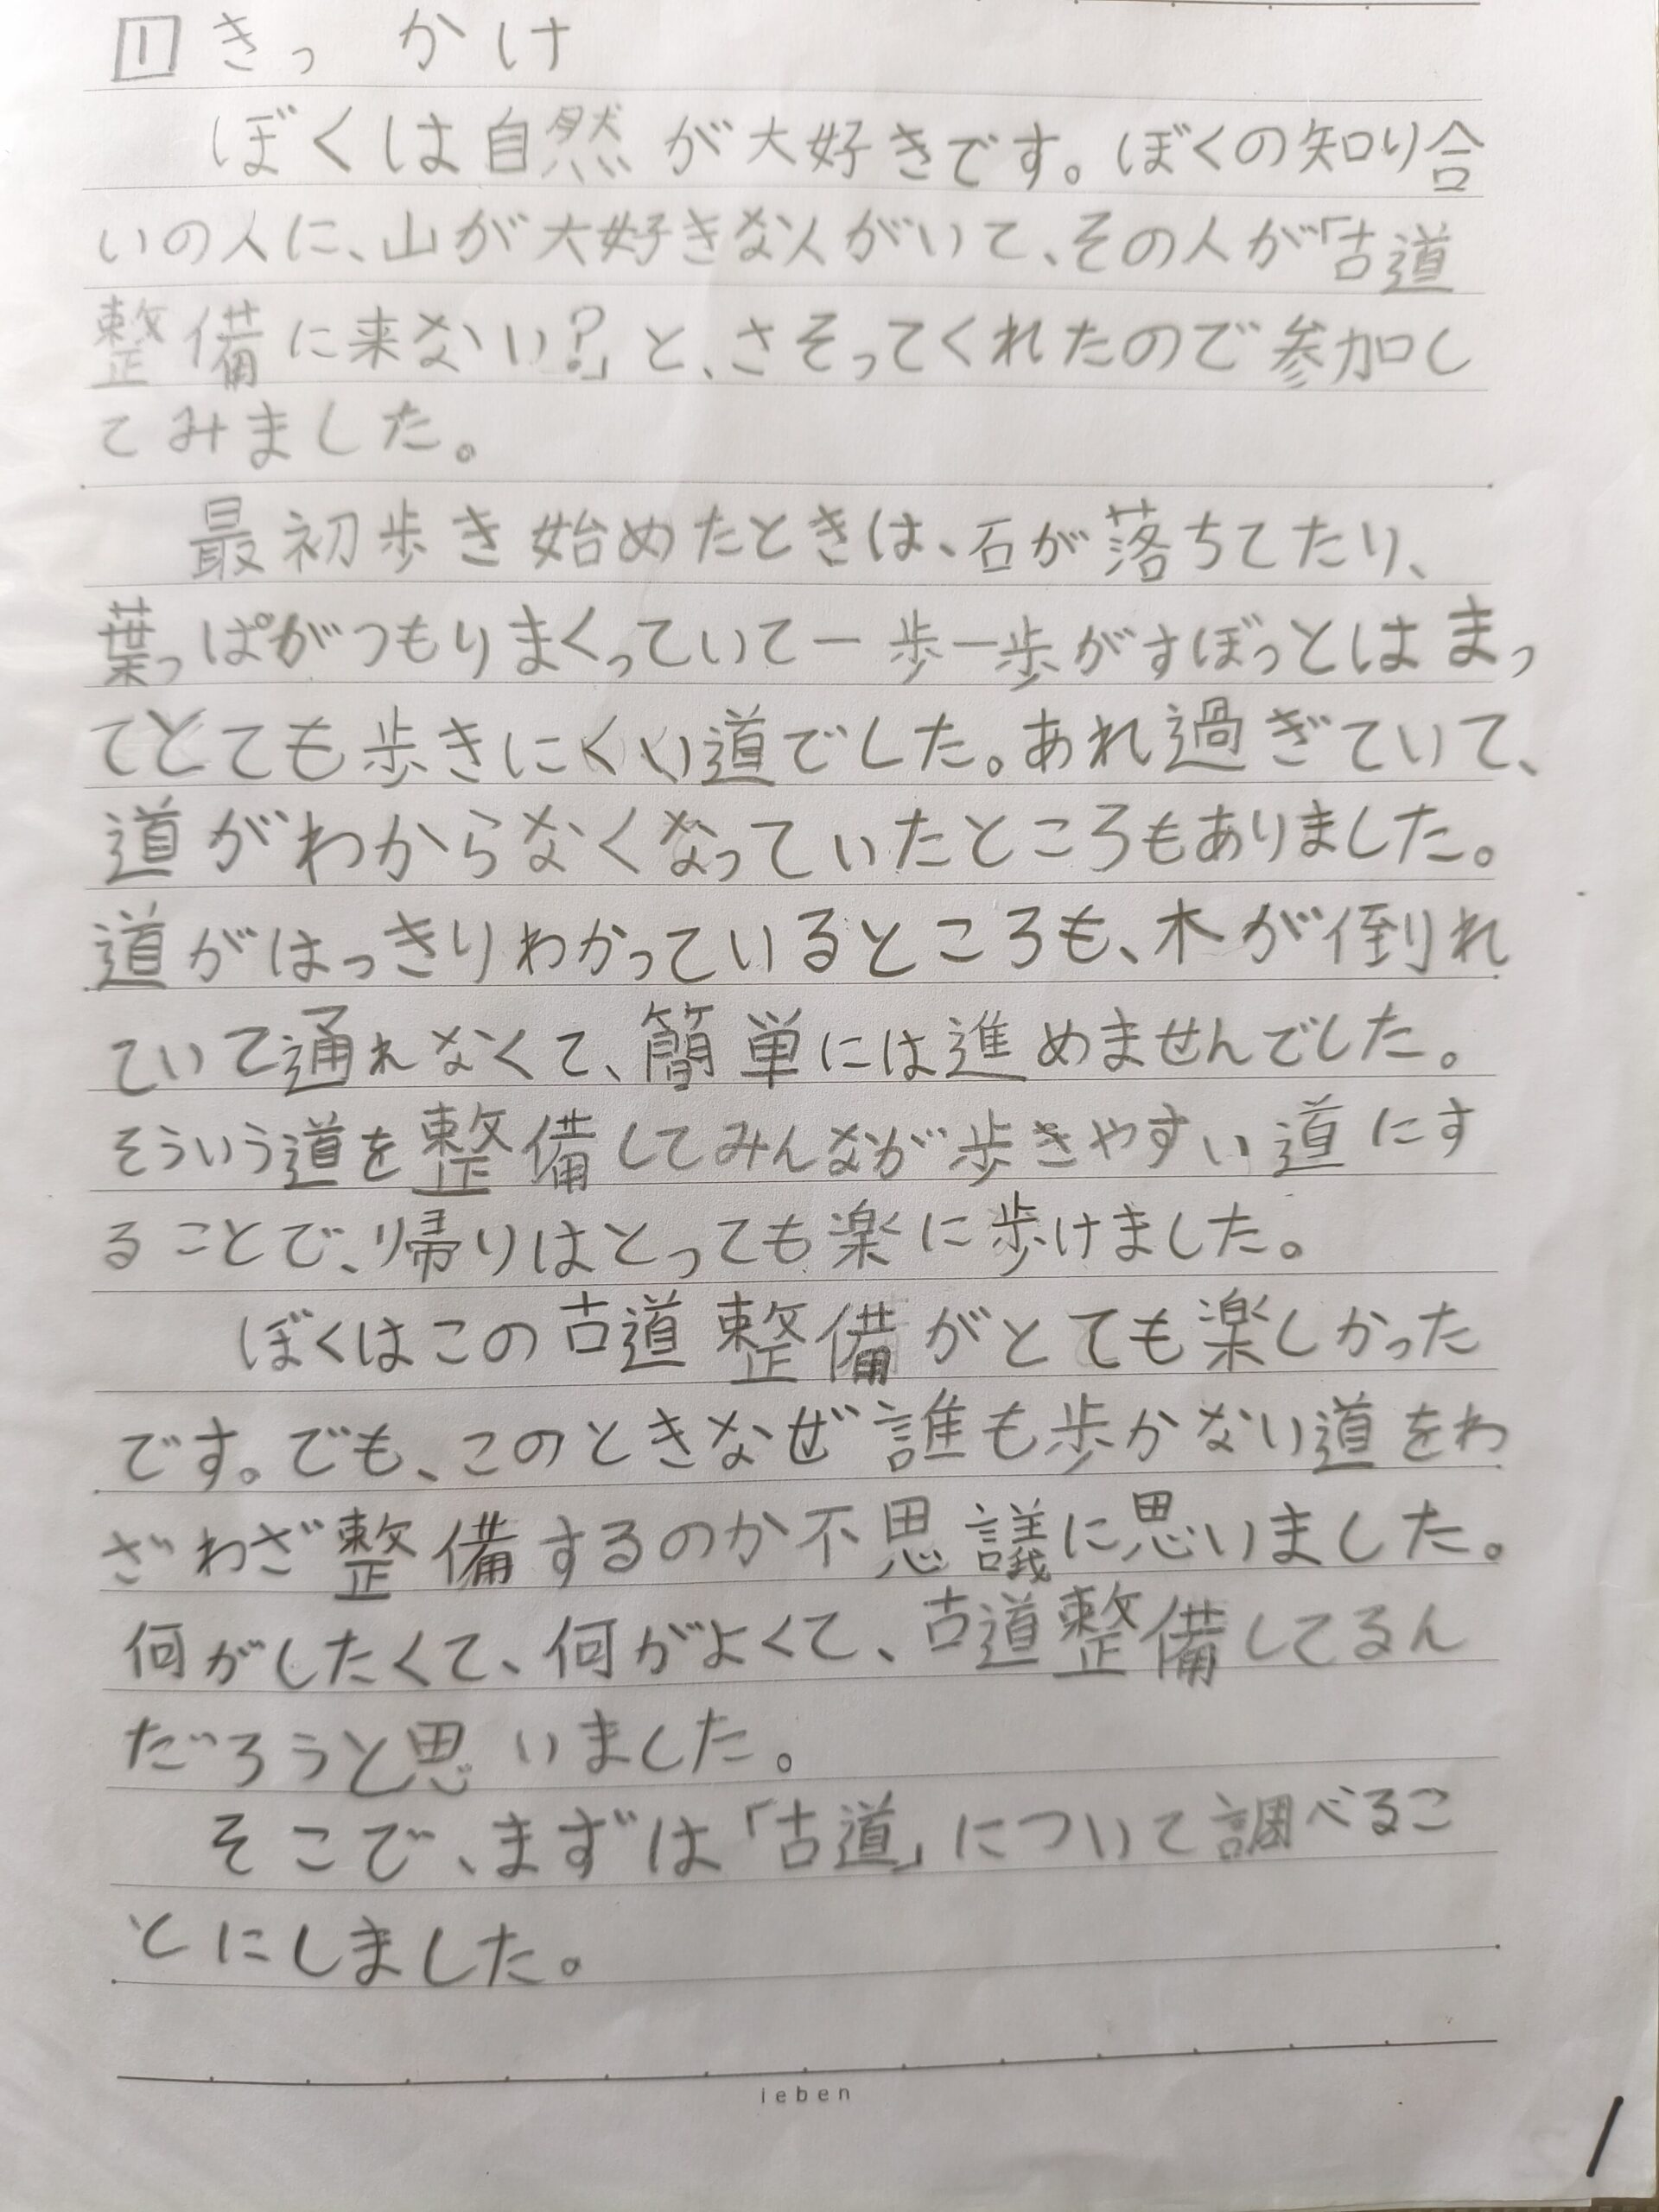 1 きっかけ
ぼくは自然が大好きです。ぼくの知り合
いの人に、山が大好きな人がいて、その人が「古道
整備に来ない?」と、さそってくれたので参加し
てみました。
最初歩き始めたときは、石が落ちてたり、
葉っぱがつもりまくっていて一歩一歩がすぼっとはまっ
てとても歩きにくい道でした。あれ過ぎていて、
道がわからなくなっていたところもありました。
道がはっきりわかっているところも、木が倒れ
ていて通れなくて、簡単には進めませんでした。
そういう道を整備してみんなが歩きやすい道にす
ることで、帰りはとっても楽に歩けました。
ぼくはこの古道整備がとても楽しかった
です。でも、このときなぜ誰も歩かない道をわ
ざわざ整備するのか不思議に思いました。
何がしたくて、何がよくて、古道整備してるん
だろうと思いました。
そこで、まずは「古道」について調べるこ
とにしました。
leben
1